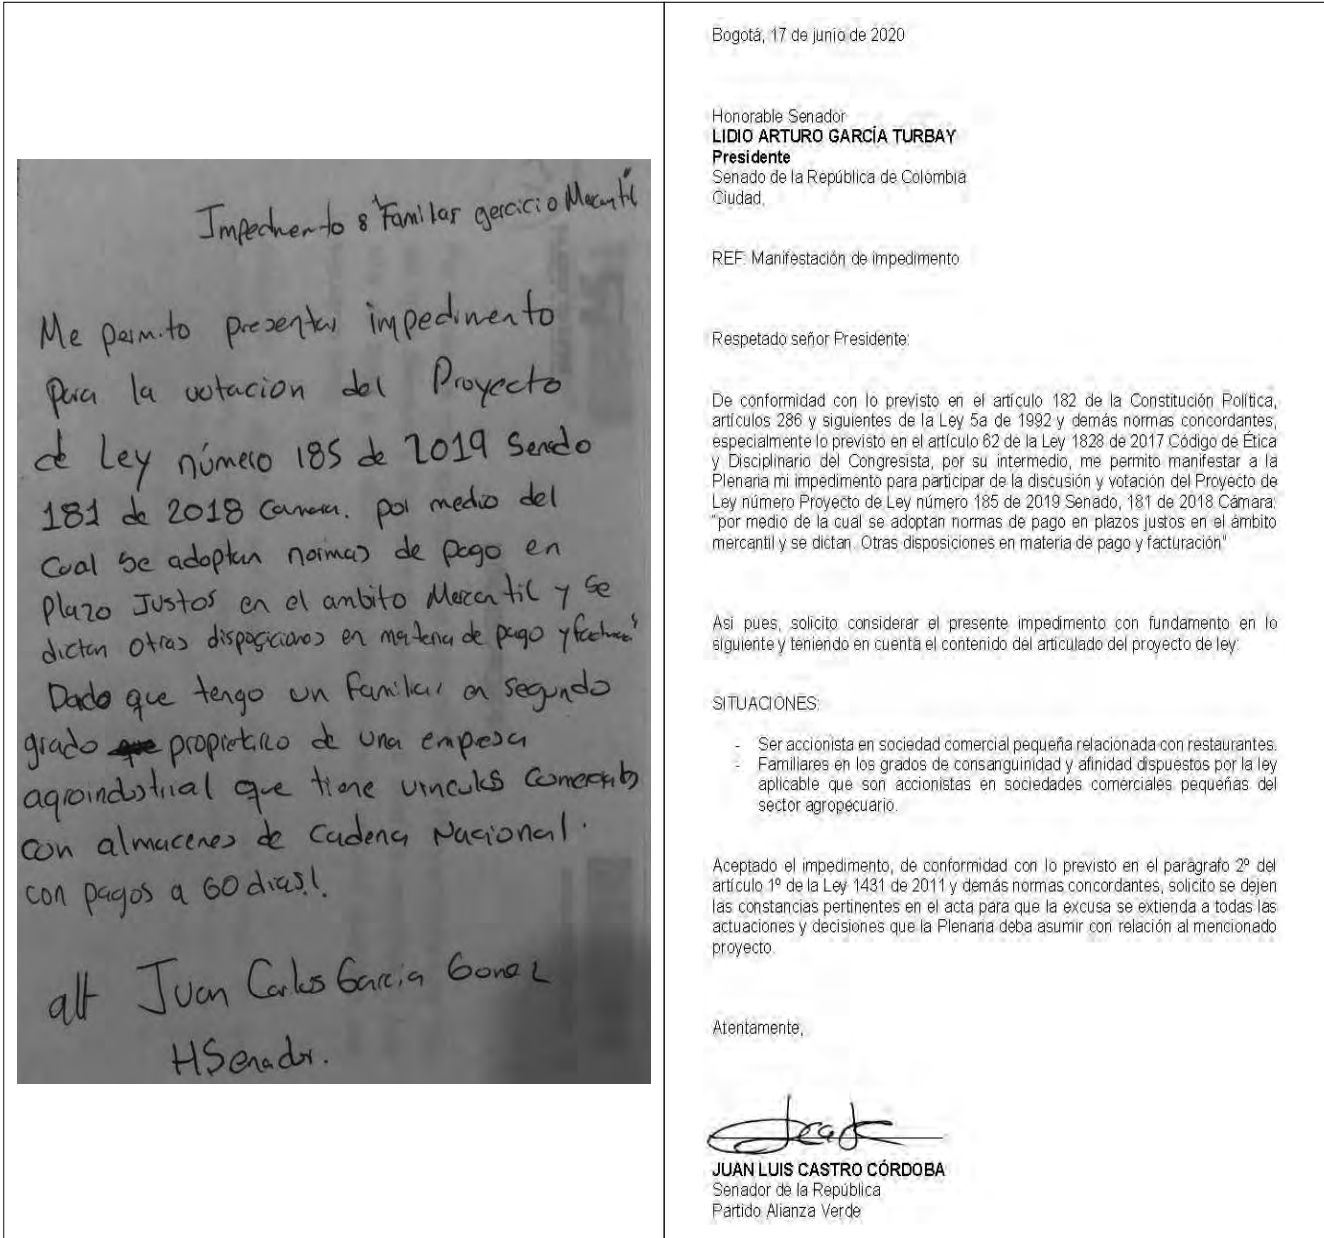 Impedimento 8 Familiar gercicio Mercantil
Me permito presentar impedimento
para la votacion del Proyecto
de Ley número 185 de 2019 Senado
181 de 2018 Camara. por medio del
Cual se adoptan normas de pago en
Plazo Justos en el ambito Mercantil y se
dictan Otras disposiciones en materia de pago y
Dado que tengo un Familiar en segundo
grado propietario de una empresa
agroindustrial que tiene vinculos Comerciales
con almacenes de Cadena Nacional.
con pagos a 60 dias!.
att Juan Carlos Garcia Gomez
HSenador.
Bogotá, 17 de junio de 2020
Honorable Senador
LIDIO ARTURO GARCÍA TURBAY
Presidente
Senado de la República de Colombia
Ciudad,
REF: Manifestación de impedimento
Respetado señor Presidente:
De conformidad con lo previsto en el artículo 182 de la Constitución Política,
artículos 286 y siguientes de la Ley 5a de 1992 y demás normas concordantes,
especialmente lo previsto en el artículo 62 de la Ley 1828 de 2017 Código de Ética
y Disciplinario del Congresista, por su intermedio, me permito manifestar a la
Plenaria mi impedimento para participar de la discusión y votación del Proyecto de
Ley número Proyecto de Ley número 185 de 2019 Senado, 181 de 2018 Cámara:
"por medio de la cual se adoptan normas de pago en plazos justos en el ámbito
mercantil y se dictan. Otras disposiciones en materia de pago y facturación"
Asi pues, solicito considerar el presente impedimento con fundamento en lo
siguiente y teniendo en cuenta el contenido del articulado del proyecto de ley:
SITUACIONES:
- Ser accionista en sociedad comercial pequeña relacionada con restaurantes.
- Familiares en los grados de consanguinidad y afinidad dispuestos por la ley
aplicable que son accionistas en sociedades comerciales pequeñas del
sector agropecuario.
Aceptado el impedimento, de conformidad con lo previsto en el parágrafo 2º del
artículo 1º de la Ley 1431 de 2011 y demás normas concordantes, solicito se dejen
las constancias pertinentes en el acta para que la excusa se extienda a todas las
actuaciones y decisiones que la Plenaria deba asumir con relación al mencionado
proyecto.
Atentamente,
JUAN LUIS CASTRO CÓRDOBA
Senador de la República
Partido Alianza Verde